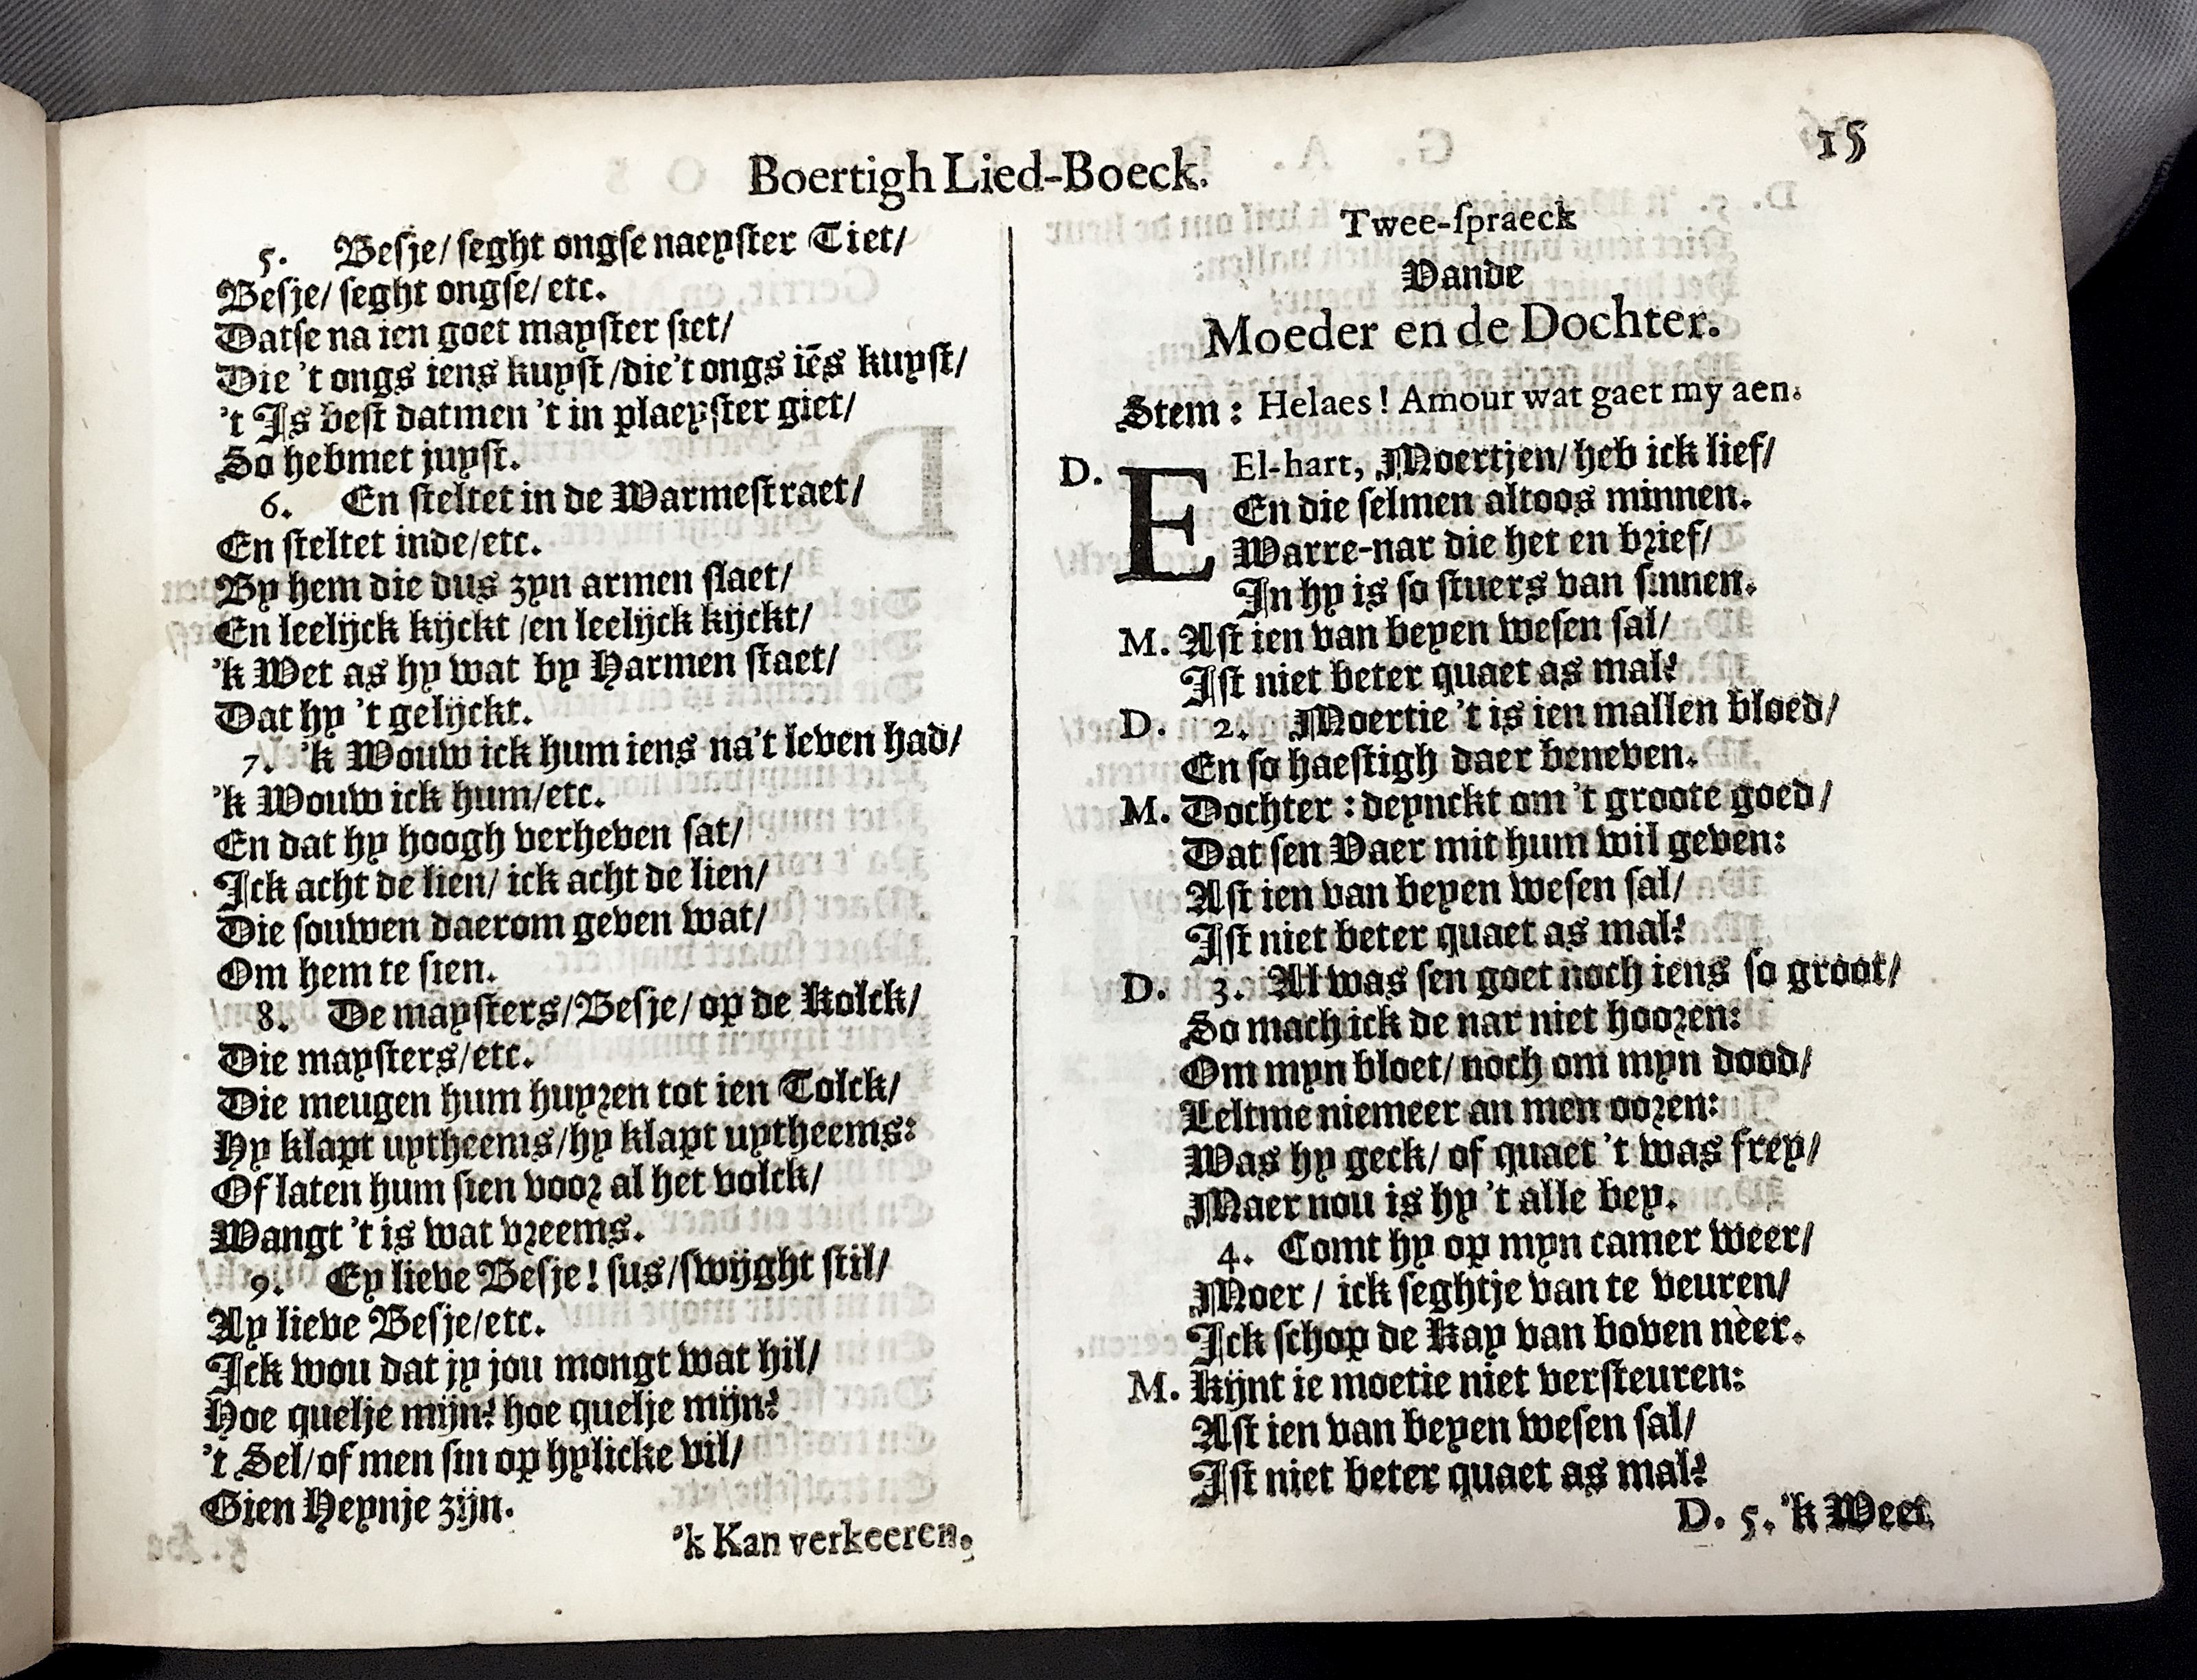 Boertigh Lied-Boeck.
15
5. Besje/ seght ongse naeyster Tiet/
Besje/ seght ongse/ etc.
Datse na ien goet mayster siet/
Die 't ongs iens kuyst /die't ongs iēs kuyst/
't Is best datmen 't in plaeyster giet/
So hebmet juyst.
6. En steltet in de Warmestraet/
En steltet inde/etc.
By hem die dus zyn armen slaet/
En leelijck kijckt /en leelijck kijckt/
'k Wet as hy wat by Harmen staet/
Dat hy 't gelijckt.
7. 'k Wouw ick hum iens na't leven had/
'k Wouw ick hum/etc.
En dat hy hoogh verheven sat/
Ick acht de lien/ ick acht de lien/
Die souwen daerom geven wat/
Om hem te sien.
8. De maysters/Besje/ op de Kolck/
Die maysters/etc.
Die meugen hum huyren tot ien Tolck/
Hy klapt uytheems/hy klapt uytheems:
Of laten hum sien voor al het volck/
Wangt 't is wat vreems.
9. Ey lieve Besje! sus/swijght stil/
Ay lieve Besje/etc.
Ick wou dat jy jou mongt wat hil/
Hoe quelje mijn? hoe quelje mijn?
't Sel/of men sin op hylicke vil/
Gien Heynje zijn.
'k Kan verkeeren.
Twee-spraeck
Vande
Moeder en de Dochter.
Stem: Helaes! Amour wat gaet my aen.
D. EEl-hart, Moertjen/ heb ick lief/
En die selmen altoos minnen.
Warre-nar die het en brief/
In hy is so stuers van sinnen.
M. Ast ien van beyen wesen sal/
Ist niet beter quaet as mal?
D. 2. Moertie 't is ien mallen bloed/
En so haestigh daer beneven.
M. Dochter: deynckt om 't groote goed/
Dat sen Vaer mit hum wil geven:
Ast ien van beyen wesen sal/
Ist niet beter quaet as mal?
D. 3. Al was sen goet noch iens so groot/
So mach ick de nar niet hooren:
Om myn bloet/ noch om myn dood/
Leltme niemeer an men ooren:
Was hy geck/ of quaet 't was frey/
Maer nou is hy 't alle bey.
4. Comt hy op myn camer weer/
Moer/ ick seghtje van te veuren/
Ick schop de Kay van boven nèer.
M. Kijnt ie moetie niet versteuren:
Ast ien van beyen wesen sal/
Ist niet beter quaet as mal?
D. 5. 'k Weet